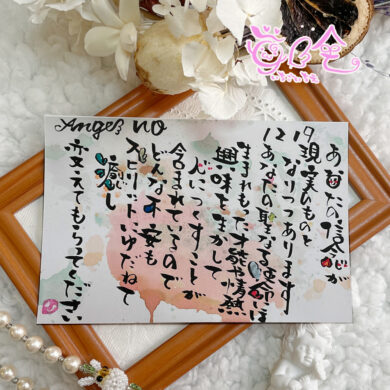 Angel no
あなたの信念が
19現実のものと
なりつつあります
12あなたの聖なる運命は
生まれもった才能や情熱
興味を生かして
人につくすことが
含まれているので
どんな不安も
スピリットにゆだねて
癒し
変えてもらってください